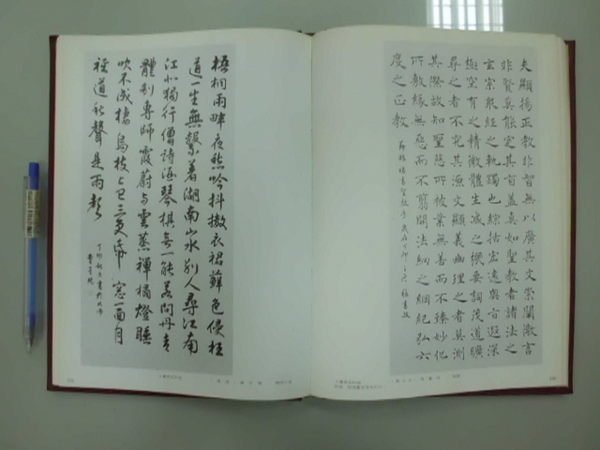 夫顯揚正教非智無以廣其文崇闡微言
非賢莫能定其旨蓋真如聖教者諸法之
玄宗眾經之軌躅也綜括宏遠奧旨遐深
極空有之精微體生滅之機要詞茂道曠
尋之者不究其源文顯義幽理之者莫測
其際故知聖慈所被業無善而不臻妙化
所敷緣無惡而不翦開法網之綱紀弘六
度之正教
梧桐雨畔夜愁吟抖擻衣裾蘚色侵枉
道一生無繫著湖南山水別人尋江南
江北獨行僧詩酒琴棋無一能若問丹青
體制專師霞蔚與雲蒸禪榻燈睡
吹不成棲烏枝上已三更窗一面月
道秋聲是雨聲